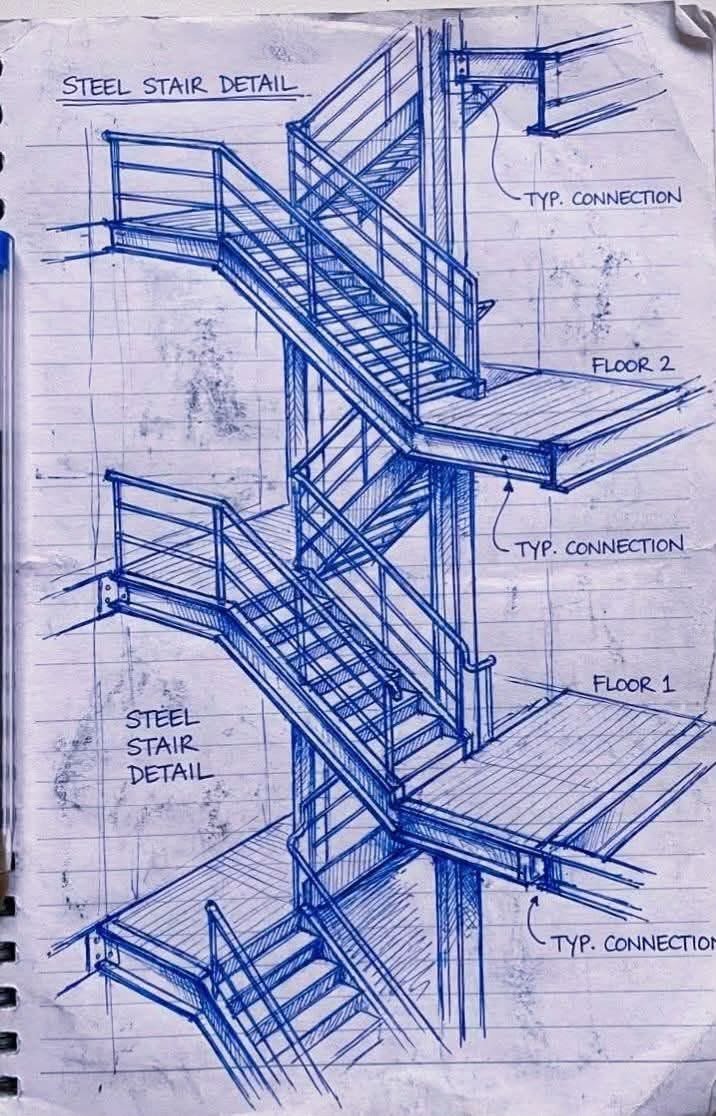 STEEL STAIR DETAIL
TYP. CONNECTION
FLOOR 2
TYP. CONNECTION
FLOOR 1
STEEL
STAIR
DETAIL
TYP. CONNECTION